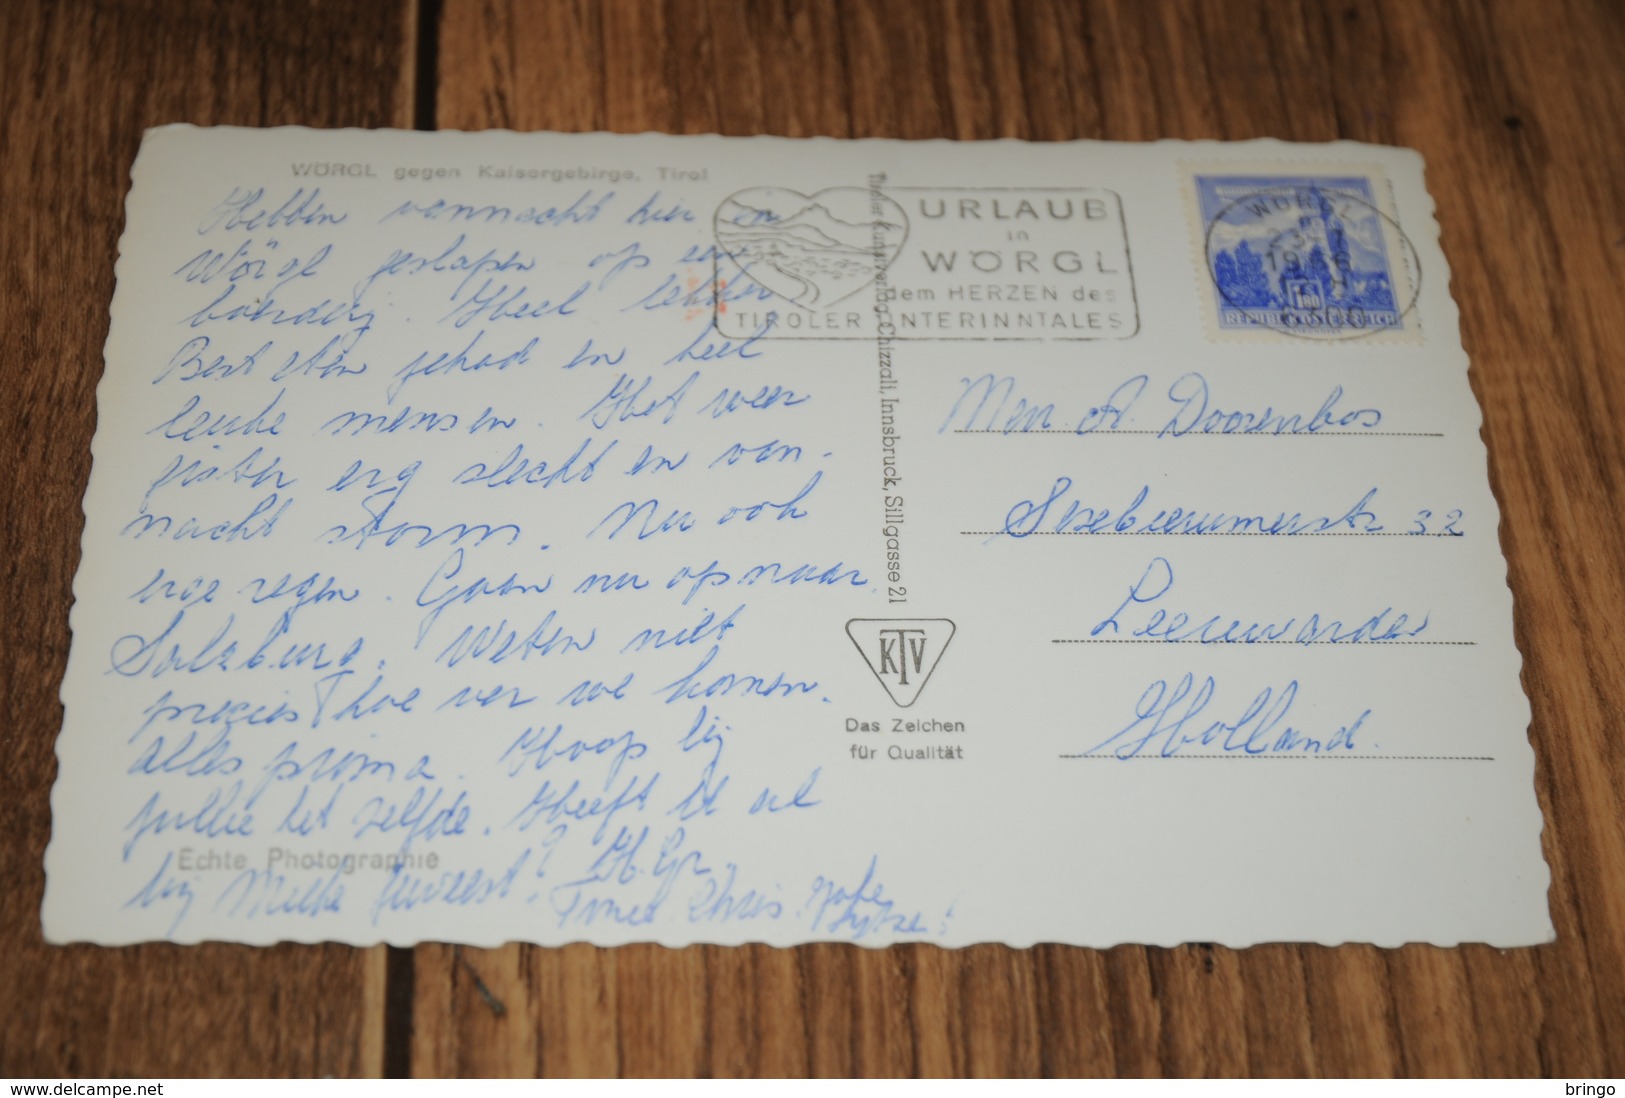 WÖRGL gegen Kaisergebirge, Tirol
Hebben vannacht hier in
Wörgl geslapen op een
boerderij. Heel lekker
Bert eten gehad en heel
leuke mensen. Het weer
gister erg slecht en van-
nacht storm. Nu ook
erge regen. Gaan nu op naar
Salzburg. Weten niet
precies hoe ver we komen.
Alles prima. Hoop bij
jullie het zelfde. Heeft het al
bij Mieke geweest? H. Gr.
Chris
Sytze.
Echte Photographie
Tiroler Kunstverlag Chizzali, Innsbruck, Sillgasse 21
KTV
Das Zeichen
für Qualität
URLAUB
in
WÖRGL
dem HERZEN des
TIROLER UNTERINNTALES
WÖRGL
1966
1.80
REPUBLIK ÖSTERREICH
A. Doorenbos
32
Leeuwarden
Holland.
delcampe.net
bringo